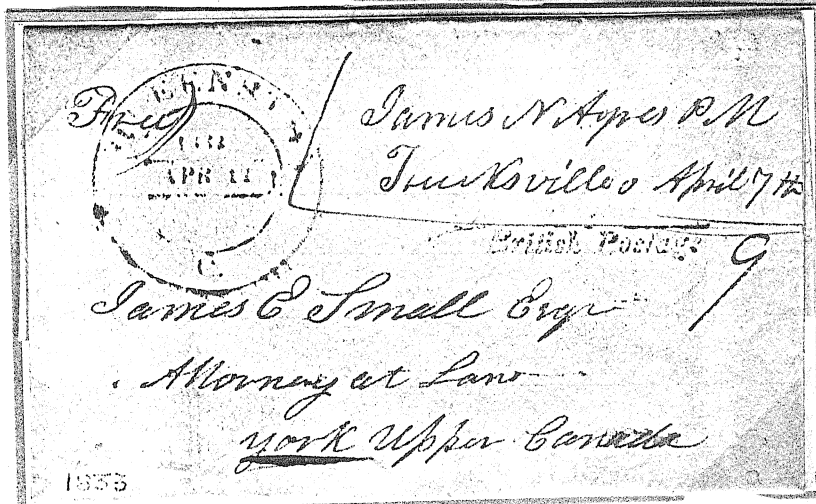 Free
APR 11
C.
James N Ayres P M
Trucksville o April 7th
British Postage
9
James E Small Esqr
Attorney at Law
York Upper Canada
1833